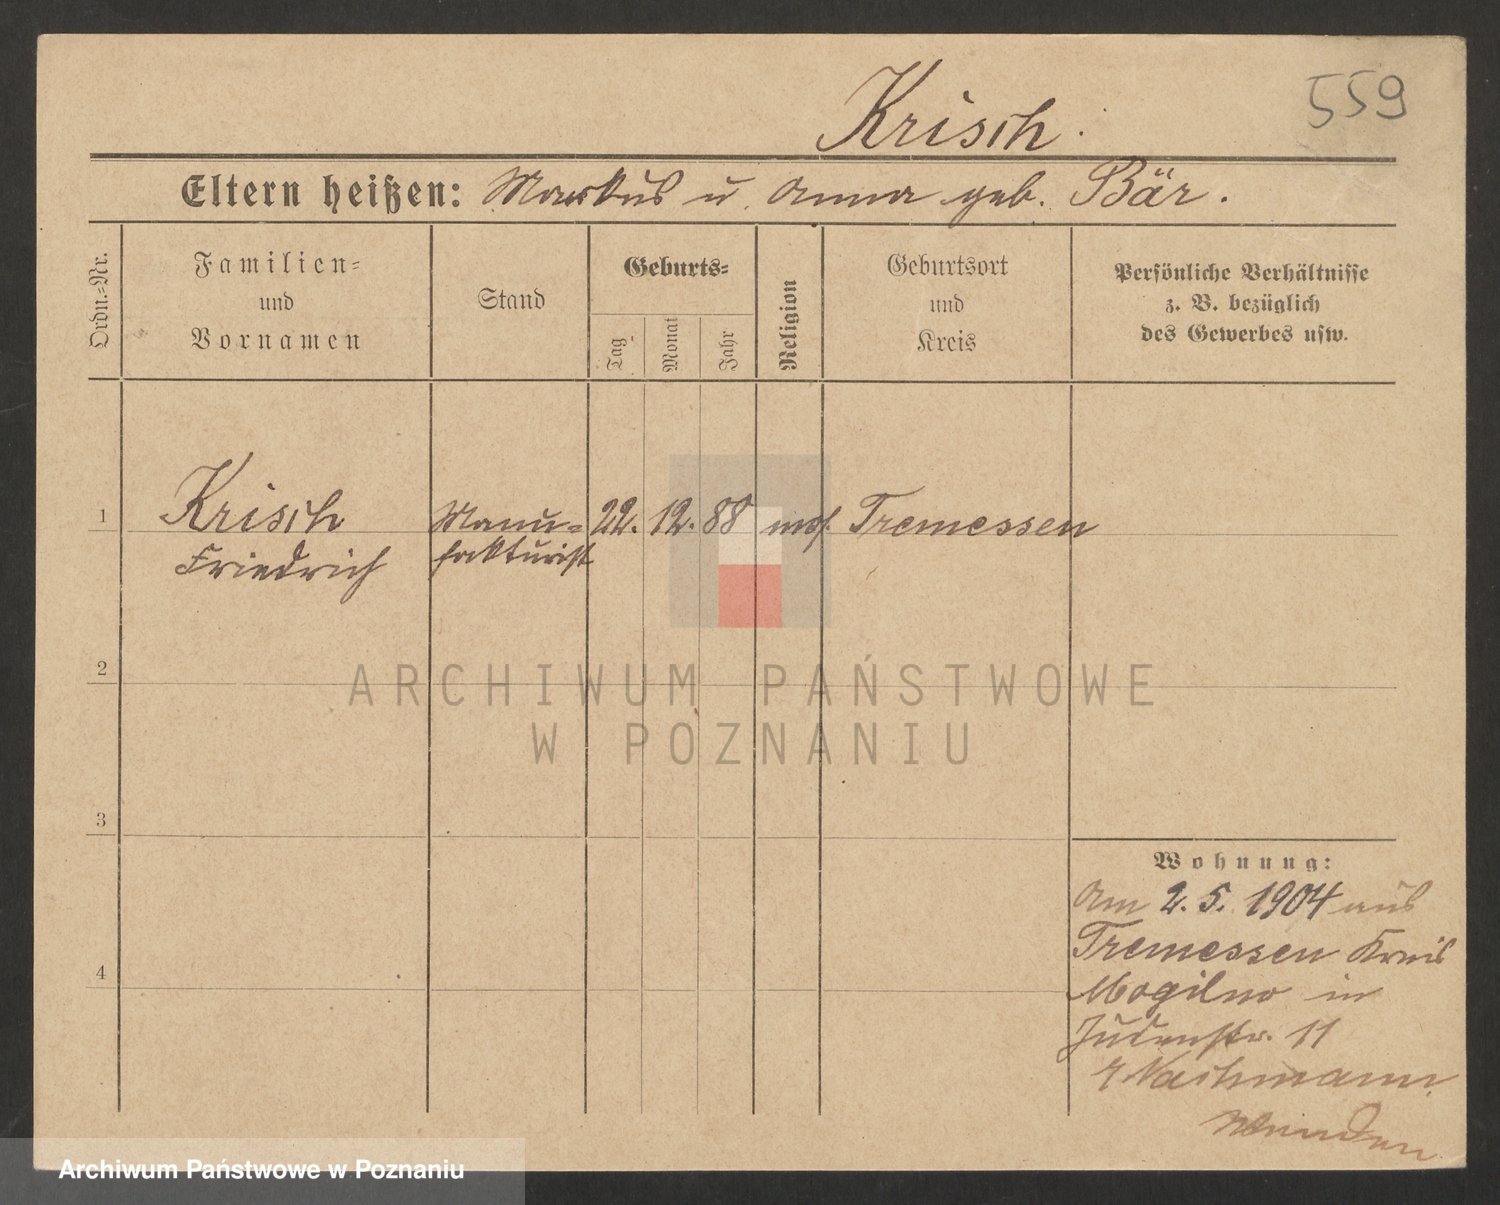 559
Krisch.
Eltern heißen: Markus u. Anna geb. Bär.
Ordn.-Nr.
Familien- und Vornamen
Stand
Geburts-
Tag
Monat
Jahr
Religion
Geburtsort und Kreis
Persönliche Verhältnisse
z. B. bezüglich
des Gewerbes usw.
1 Krisch Manu- 22. 12. 88 mos. Tremessen
Friedrich fakturist
2
ARCHIWUM PAŃSTWOWE
W POZNANIU
3
Wohnung:
Am 2. 5. 1904 aus
Tremessen Kreis
4
Mogilno in
Judenstr. 11
Nachmann
Wenden
Archiwum Państwowe w Poznaniu